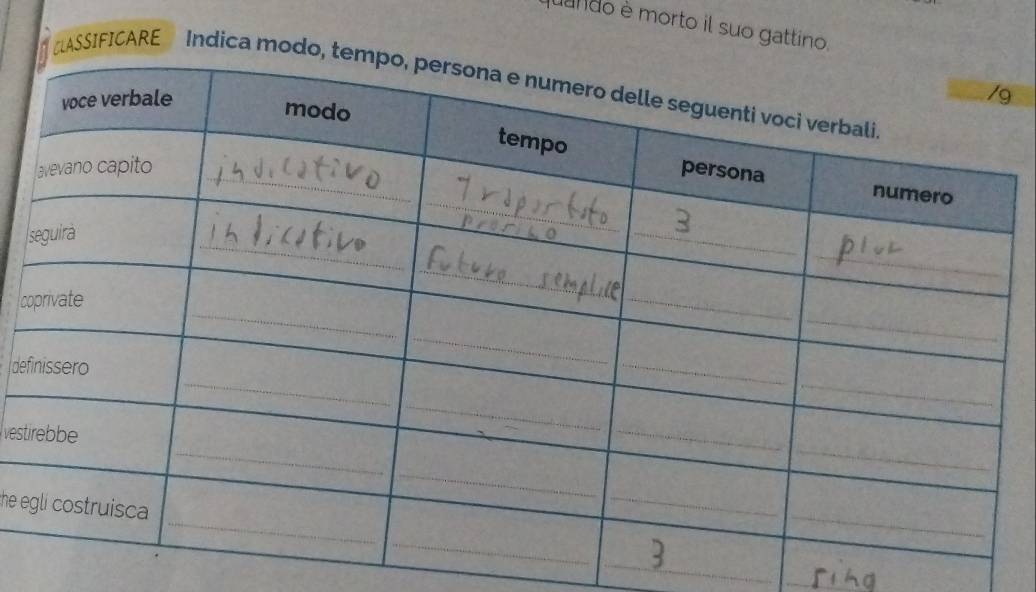 quando è morto il suo gattino.
CLASSIFICARE Indica modo, tempo, persona e numero delle seguenti voci verbali.
/9
voce verbale modo tempo persona numero
avevano capito indicativo Trapassato prossimo 3 plur
seguirà indicativo Futuro semplice
coprivate
definissero
vestirebbe
che egli costruisca 3 sing